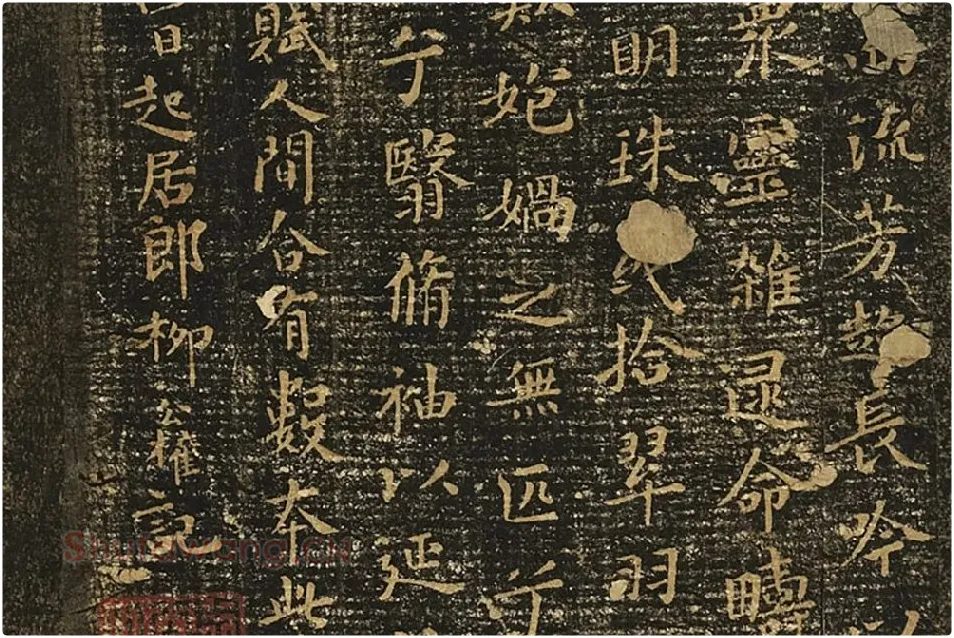 流芳超長吟以
衆靈雜遝命疇
明珠或拾翠羽
歎㚿媧之無匹兮
兮翳脩袖以延
賦人間合有數本此
日起居郎柳公權記
Shufawang.cn